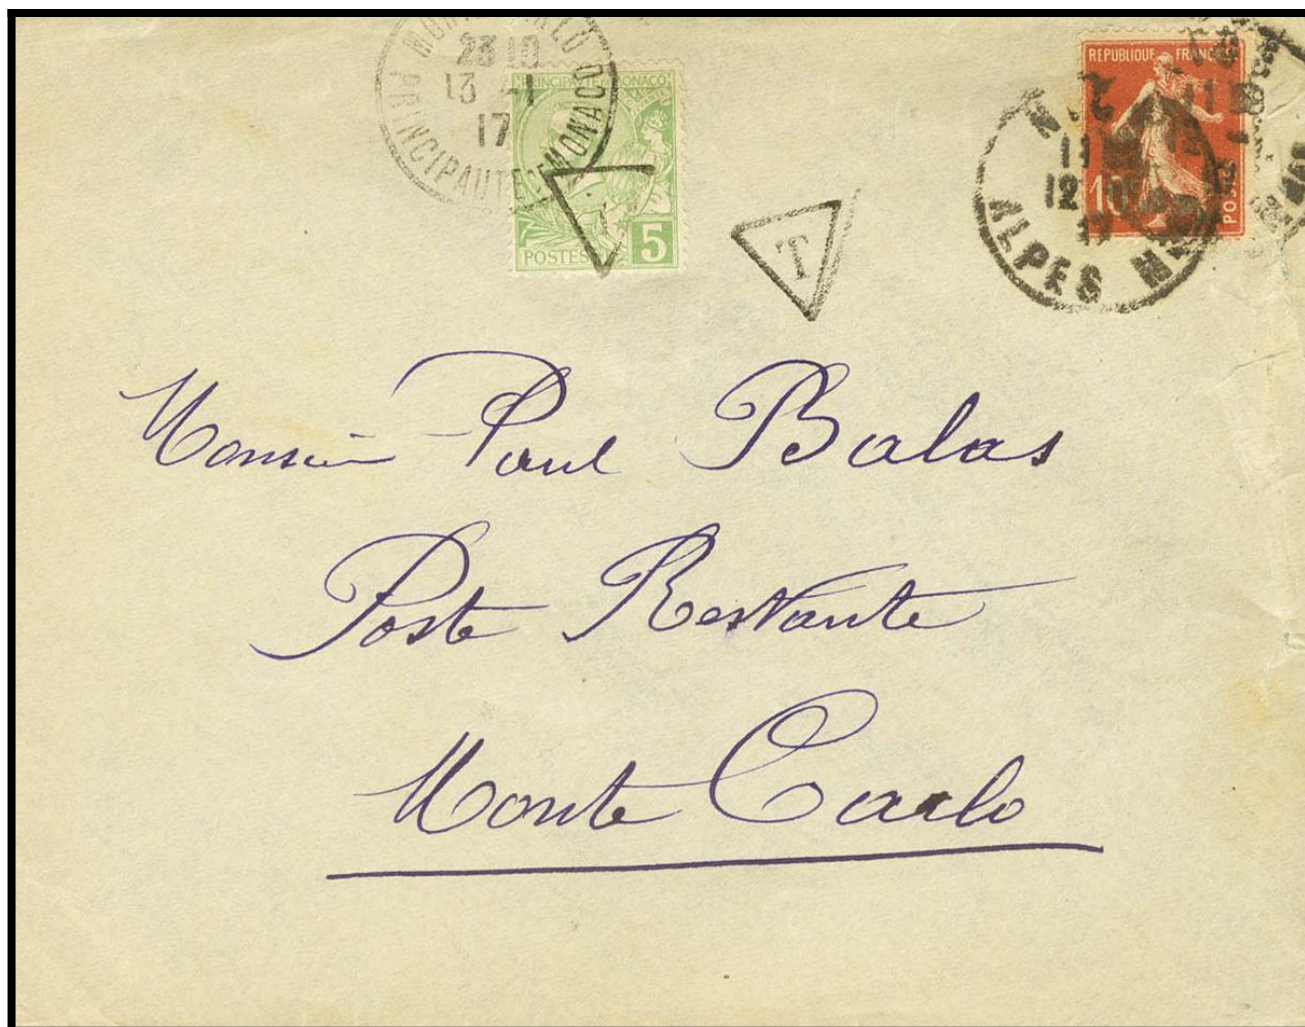 MONTE-CARLO
23 10
13 -1
17
PRINCIPAUTE DE MONACO
PRINCIPAUTE DE MONACO
POSTES
5
T
T
REPUBLIQUE FRANÇAISE
10
POSTES
NICE
12
17
ALPES
Monsieur Paul Balas
Poste Restante
Monte Carlo